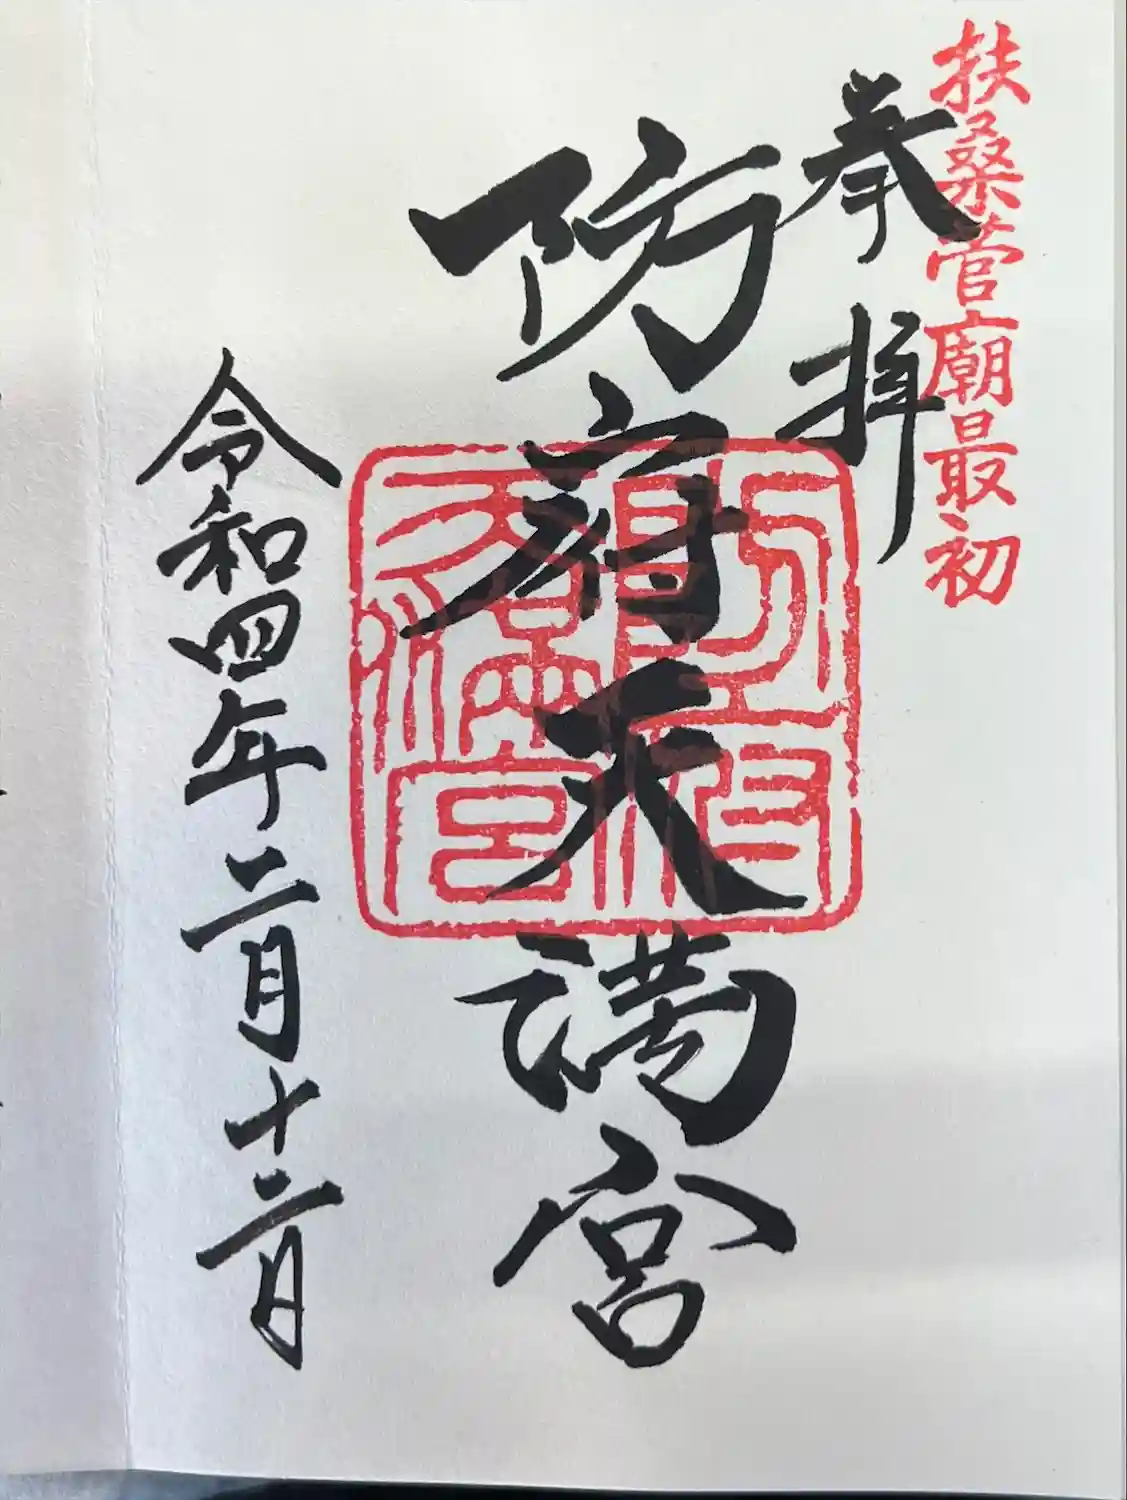 扶桑菅廟最初
奉拝
防府天満宮
防府天満宮
令和四年二月十二月